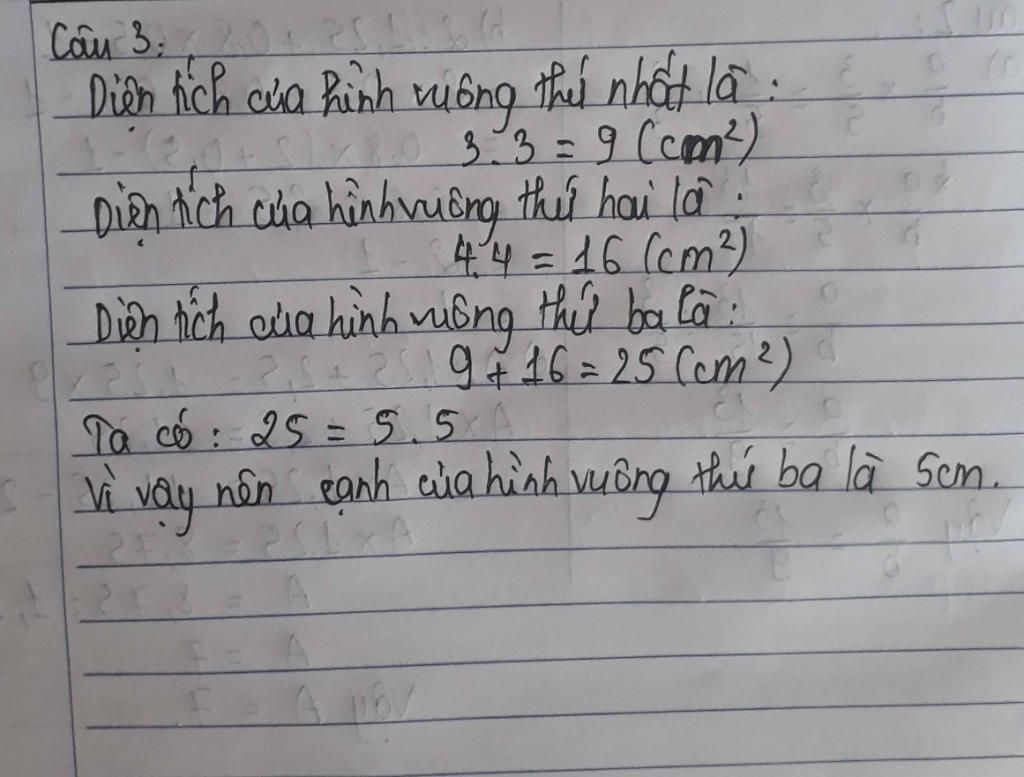 Câu 3:
Diện tích của hình vuông thứ nhất là:
3.3 = 9 (cm²)
Diện tích của hình vuông thứ hai là:
4.4 = 16 (cm²)
Diện tích của hình vuông thứ ba là:
9 + 16 = 25 (cm²)
Ta có: 25 = 5.5
Vì vậy nên cạnh của hình vuông thứ ba là 5cm.